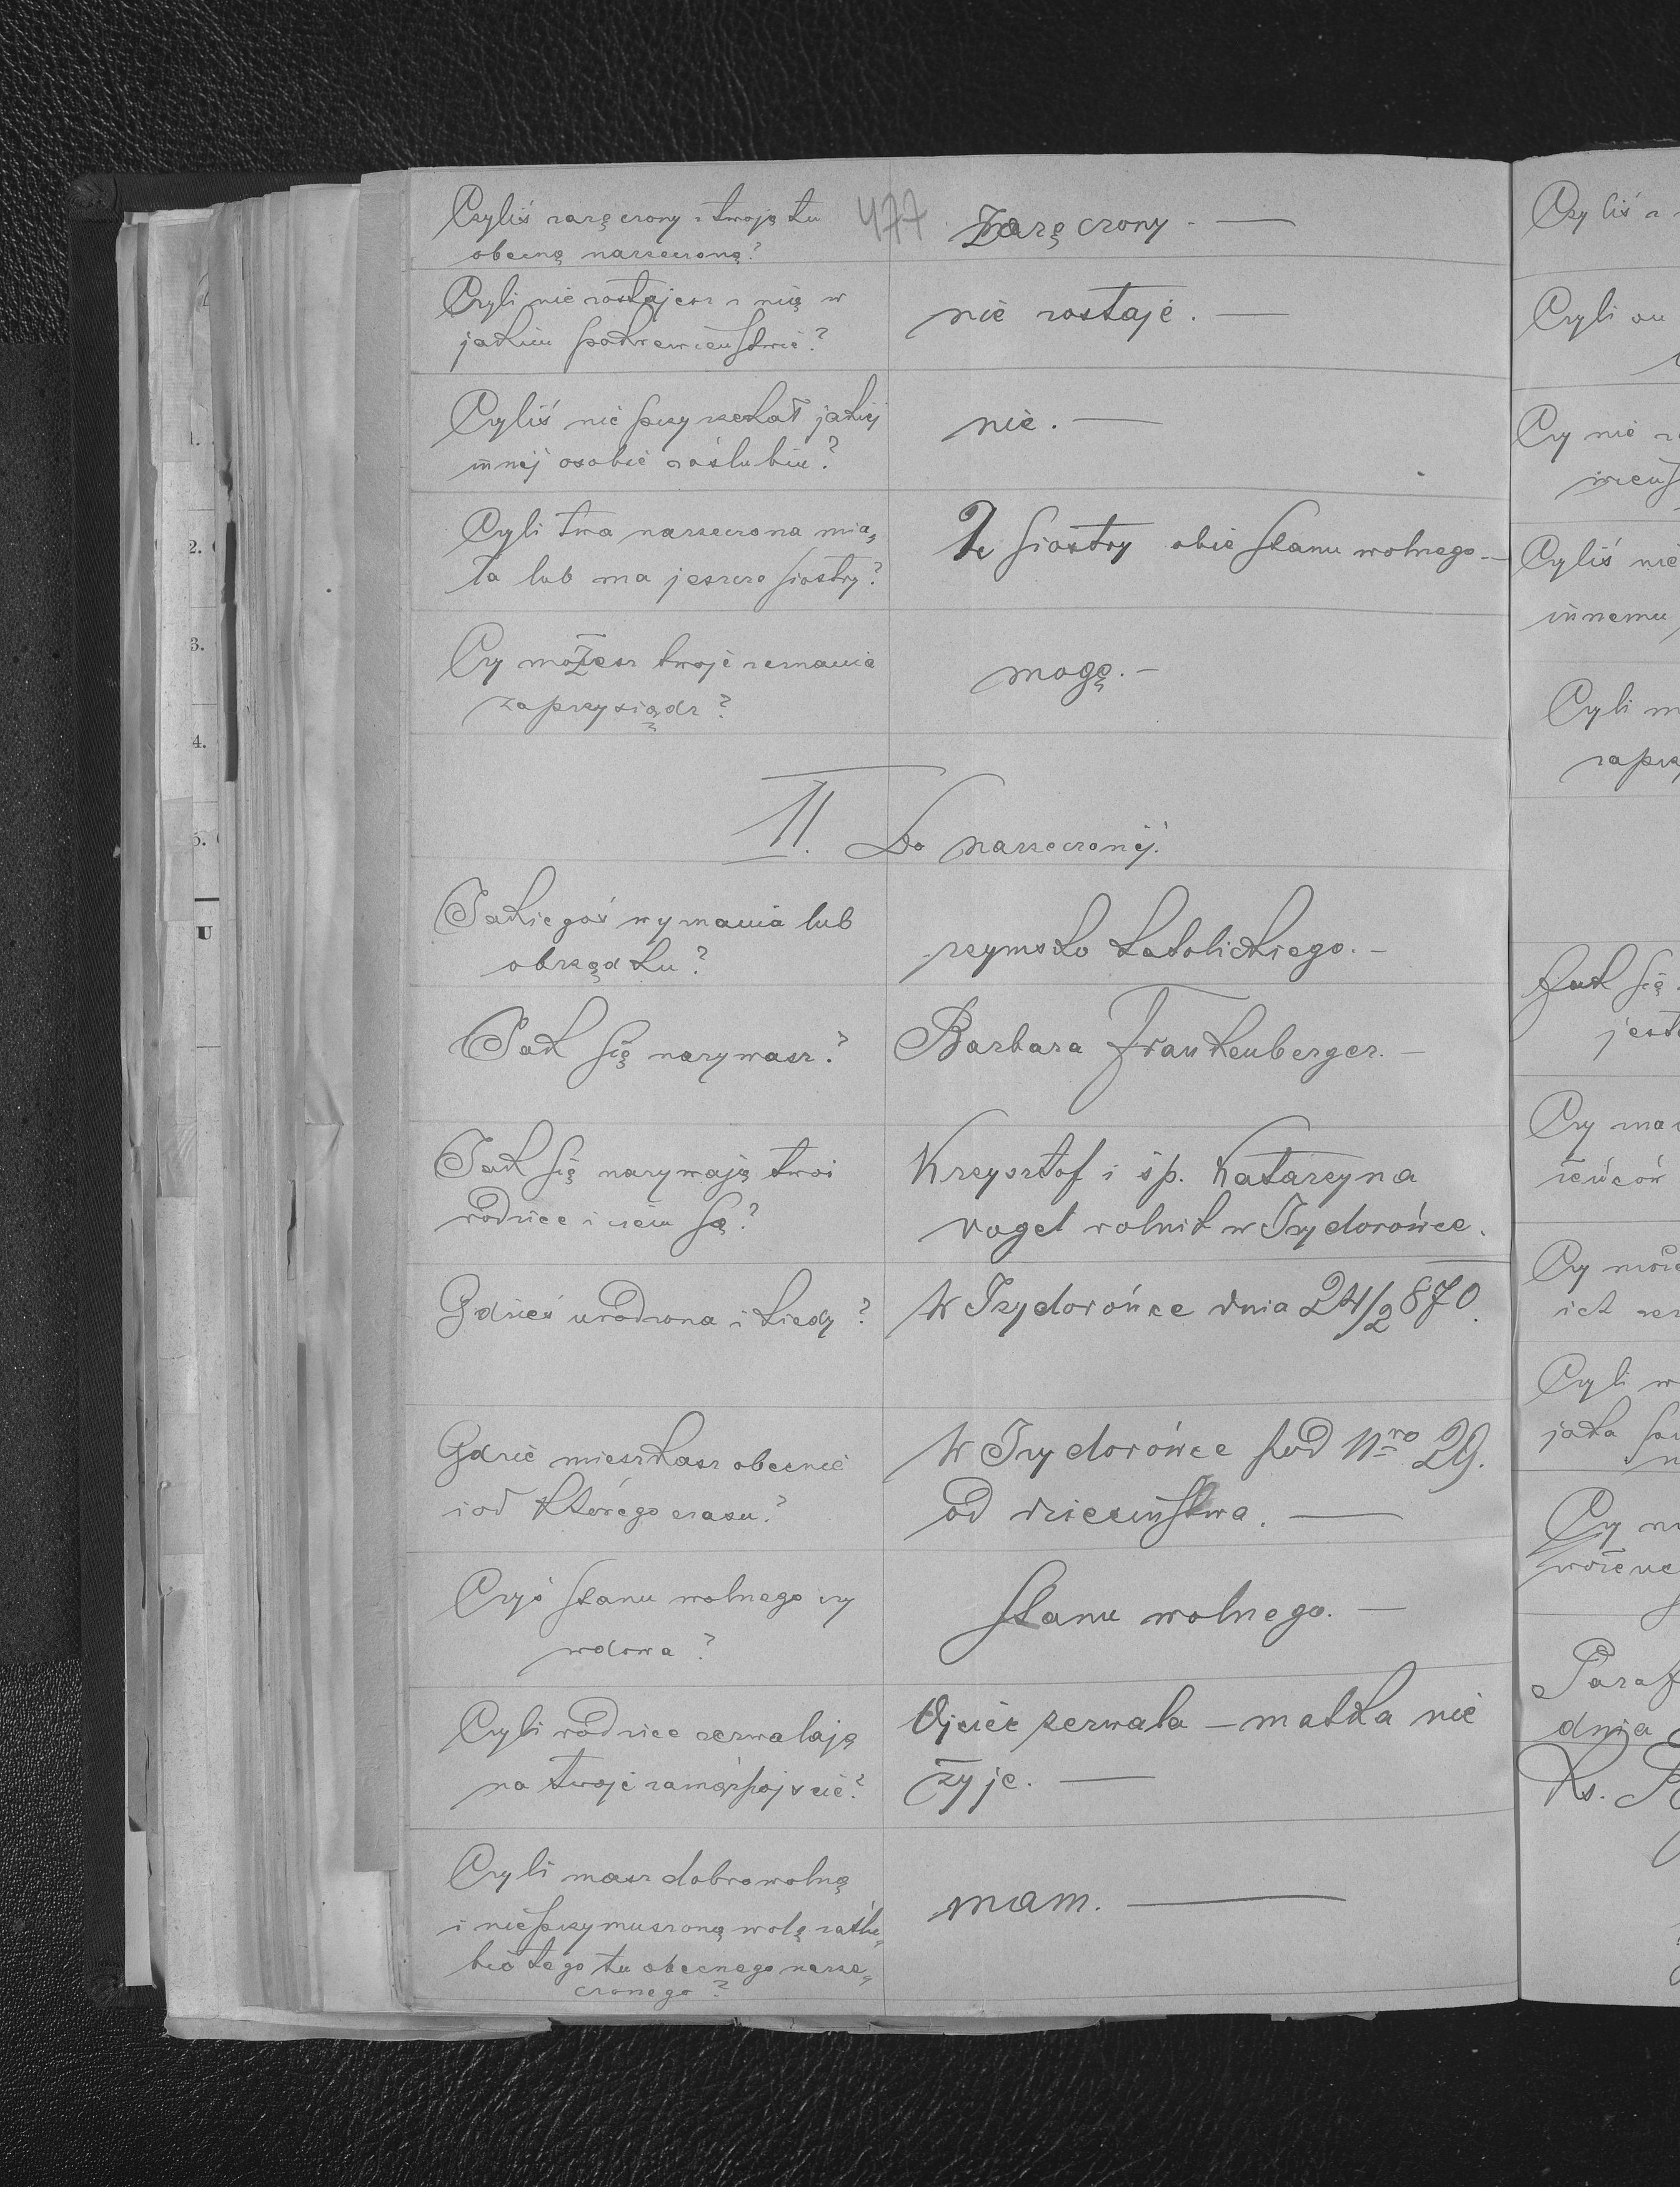 477
Czyliś zaręczony z twoją tu
obecną narzeczoną?
Zaręczony. —
Czyli nie zostajesz z nią w
jakiem pokrewieństwie?
nie zostaje. —
Czyliś nie przyrzekał jakiej
innej osobie zaślubin?
nie. —
Czyli twa narzeczona mia„
ła lub ma jeszcze siostry?
2e siostry obie stanu wolnego. —
Czy możesz twoje zeznania
zaprzysiądz?
mogę. —
II. Do narzeczonej.
Jakiegoś wyznania lub
obrządku?
rzymsko katolickiego. —
Jak się nazywasz?
Barbara Frankenberger. —
Jak się nazywają twoi
rodzice i czem są?
Krzysztof i śp. Katarzyna
Vogel rolnik w Izydorówce.
Gdzieś urodzona i kiedy?
W Izydorówce dnia 24/2 870.
Gdzie mieszkasz obecnie
i od którego czasu?
W Izydorówce pod Nro 29.
od dzieciństwa. —
Czyś stanu wolnego czy
wdowa?
stanu wolnego. —
Czyli rodzice zezwalają
na twoje zamążpójście?
Ojciec zezwala — matka nie
żyje. —
Czyli masz dobrowolną
i nieprzymuszoną wolę zaślu„
bić tego tu obecnego narze„
czonego?
mam. —
1.
2.
3.
4.
5.
U
Czyliś z
Czyli on
Czy nie z
wieńs
Czyliś nie
innemu
Czyli m
zaprz
Jak się
jest
Czy ma
Czy może
ich
Czyli w
jaka
Czy
Paraf
dnia
Ks.